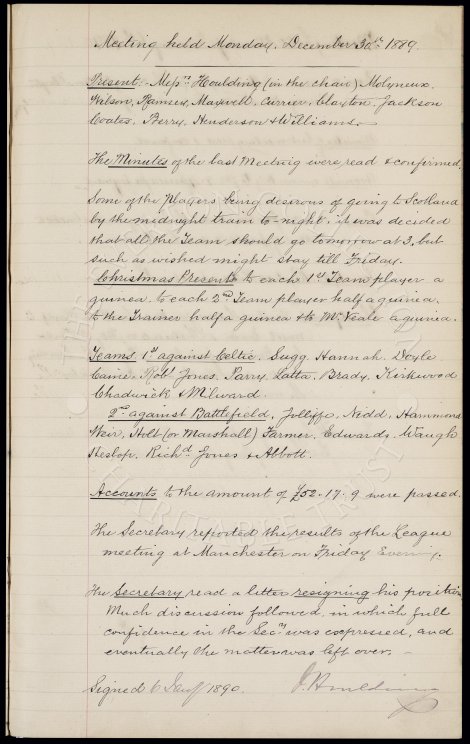 Meeting held Monday, December 30th 1889.
Present. Messrs Houlding (in the chair) Molyneux.
Wilson, Ramsey, Maxwell, Currier, Clayton, Jackson
Coates, Berry, Henderson & Williams.
The Minutes of the last Meeting were read & confirmed.
Some of the Players being desirous of going to Scotland
by the midnight train to-night, it was decided
that all the Team should go tomorrow at 3, but
such as wished might stay till Friday.
Christmas Presents to each 1st Team player a
guinea. to each 2nd Team player half a guinea.
to the Trainer half a guinea & to Mr Veale a guinea.
Teams 1st against Celtic. Sugg, Hannah, Doyle
Caine, Robt Jones, Parry, Latta, Brady, Kirkwood
Chadwick & Milward.
2nd against Battlefield, Jolliffe, Nidd, Hammond
Weir, Holt (or Marshall) Farmer, Edwards, Waugh
Heslop, Richd Jones & Abbott.
Accounts to the amount of £52.17.9 were passed.
The Secretary reported the results of the League
meeting at Manchester on Friday Evening.
The Secretary read a letter resigning his position
Much discussion followed, in which full
confidence in the Secy was expressed, and
eventually the matter was left over.
Signed 6 Jany 1890. J. Houlding